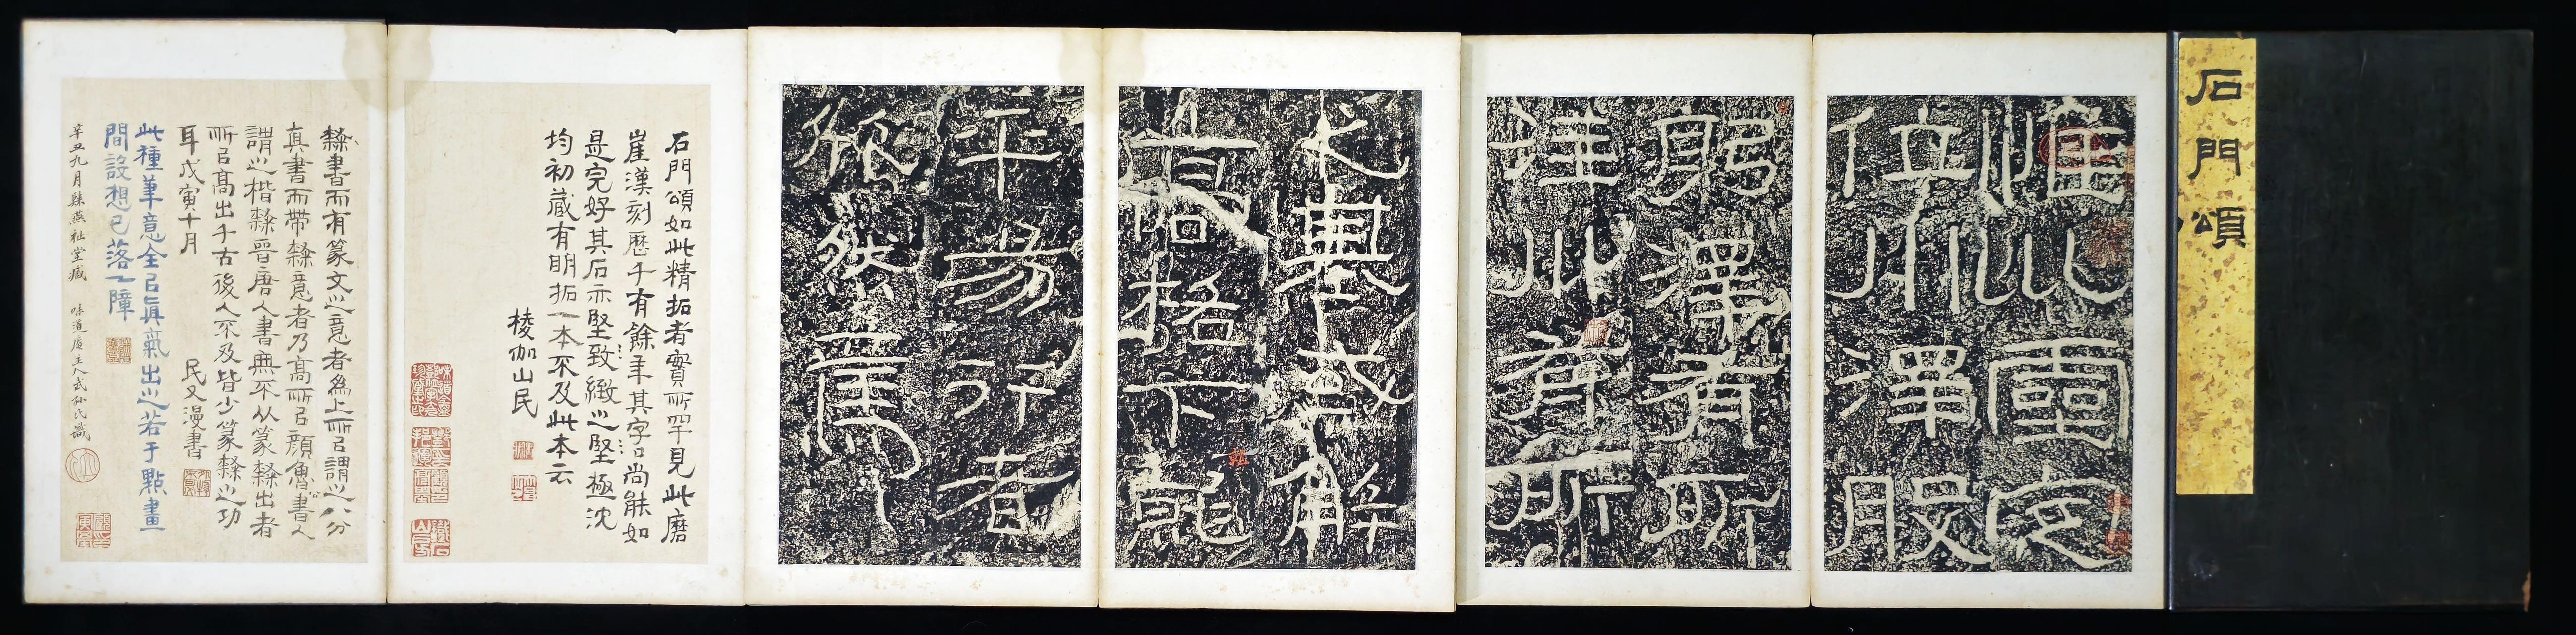 石門頌
惟巛靈定
位川澤股
躬澤有所
注川有所
充其塗或解
高格下就
平易行者
欣然焉
石門頌如此精拓者實所罕見此磨
崖漢刻歷千有餘年其字口尚能如
是完好其石亦堅致緻之堅極沈
均初藏有明拓一本不及此本云
棱伽山民
隸書而有篆文之意者為上所㠯謂之八分
真書而帶隸意者乃高所㠯顏魯書人
謂之楷隸晉唐人書無不从篆隸出者
所㠯高出千古後人不及皆少篆隸之功
耳戊寅十月
民又漫書
此種筆意全㠯真氣出之若于點畫
間設想已落一障
辛丑九月 燕祉堂藏 味道 主人式 氏識